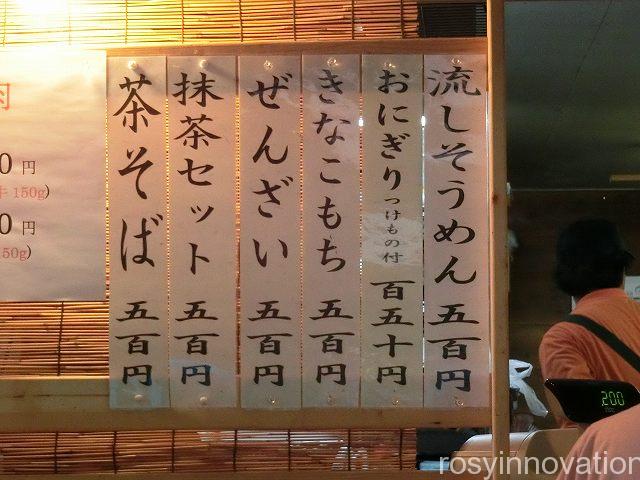 流しそうめん 五百円
おにぎり つけもの付 百五十円
きなこもち 五百円
ぜんざい 五百円
抹茶セット 五百円
茶そば 五百円
肉
0 円
牛 150g)
0 円
50g)
200
rosyinnovation